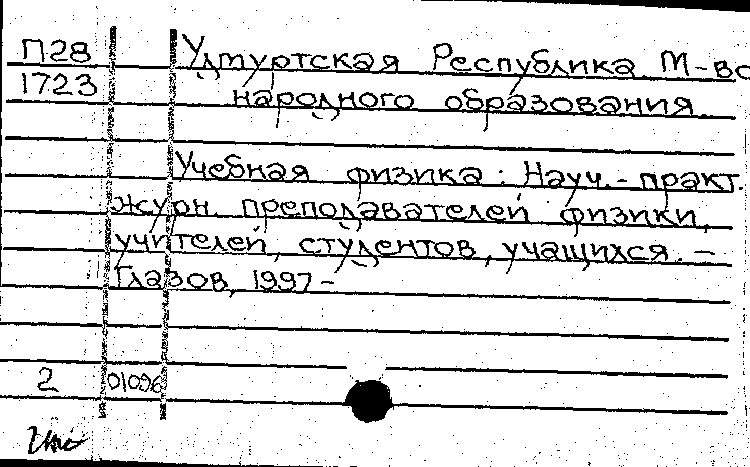 П28 Удмуртская Республика М-во
1723 народного образования
Учебная физика : Науч.- практ.
журн. преподавателей физики,
учителей, студентов, учащихся. -
Глазов, 1997 -
2